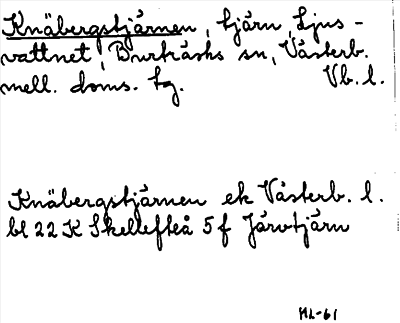 Knäbergstjärnen, tjärn, Ljus-
vattnet, Burträsks sn, Västerb.
mell. doms. tg. Vb. l.
Knäbergstjärnen ek Västerb. l.
bl 22 K Skellefteå 5 f Järvtjärn
ML-61